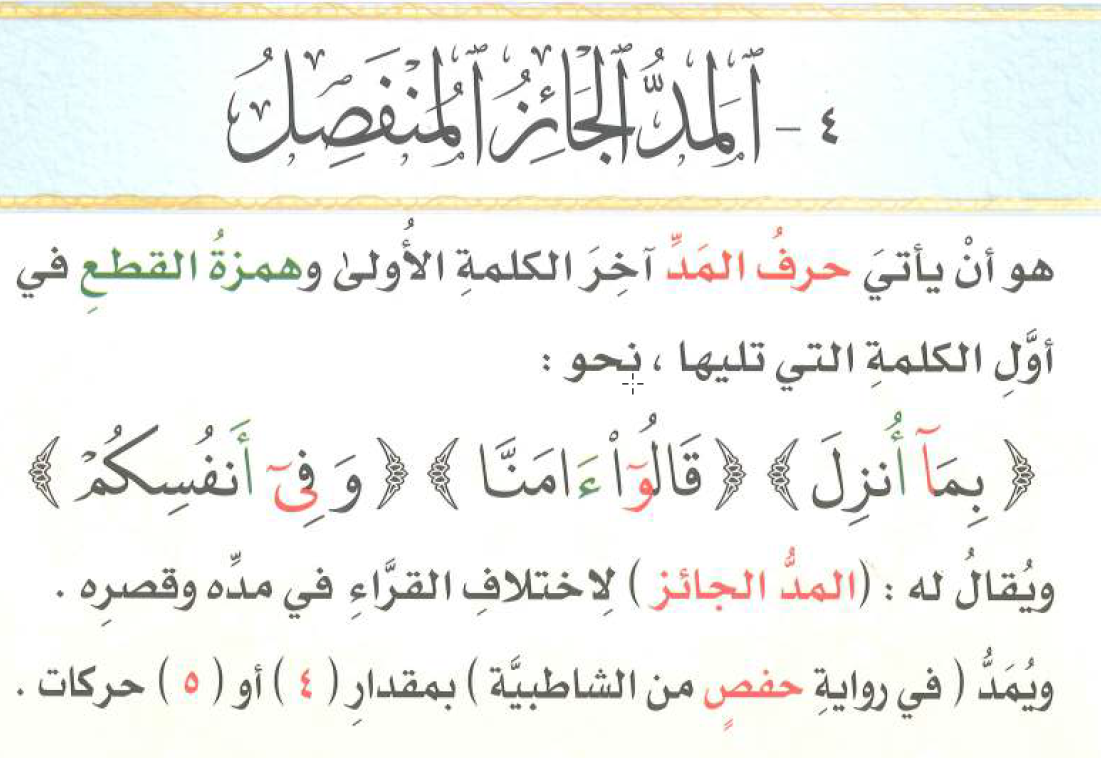 ٤ - ٱلْمَدُّ ٱلْجَائِزُ ٱلْمُنْفَصِلُ
هو أنْ يأتيَ حرفُ المَدِّ آخِرَ الكلمةِ الأُولىٰ وهمزةُ القطعِ في
أوَّلِ الكلمةِ التي تليها ، نحو :
﴿ بِمَآ أُنزِلَ ﴾ ﴿ قَالُوٓاْ ءَامَنَّا ﴾ ﴿ وَفِىٓ أَنفُسِكُمْ ﴾
ويُقالُ له : ( المدُّ الجائز ) لِاختلافِ القرَّاءِ في مدِّه وقصرِه .
ويُمَدُّ ( في روايةِ حفصٍ من الشاطبيَّة ) بمقدارِ ( ٤ ) أو ( ٥ ) حركات .